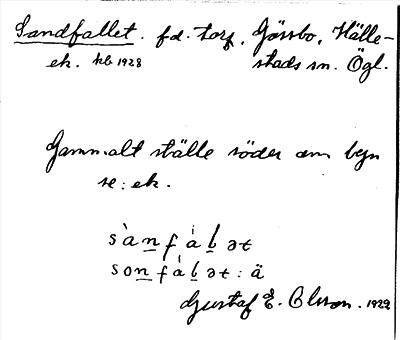 Sandfallet. fd. torp, Gässbo, Hälle-
ek. kb 1928 stads sn. Ögl.
Gammalt ställe söder om byn
se: ek.
sànfáḷət
sonfáḷət: ä
Gustaf E. Olsson. 1929